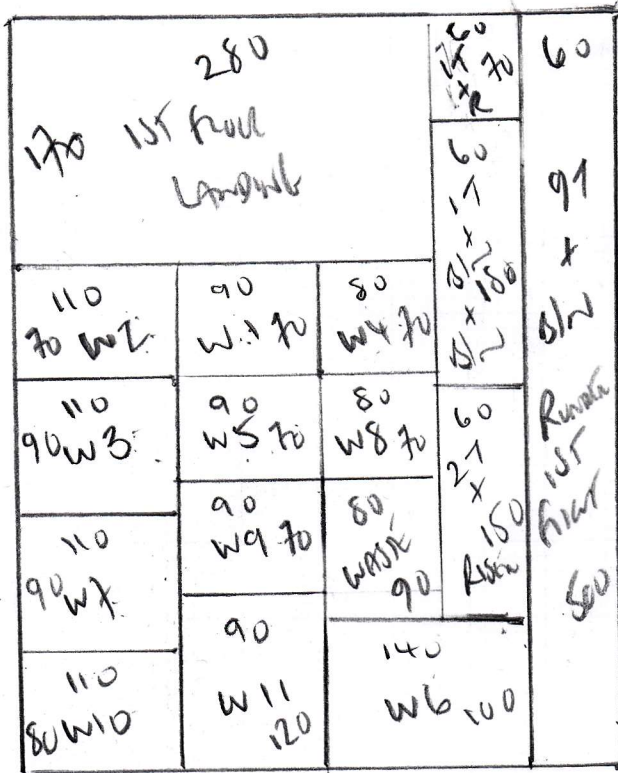 280
170 1ST FLOOR
LANDING
60
1T 70
X R
60
1T
X
B/N
150
X
B/N
60
9T
X
B/N
RUNNER
1ST
FLIGHT
500
110
70 W2
90
W.1 70
80
W4 70
110
90 W3
90
W5 70
80
W8 70
60
2T
X
150
RISER
110
90 W7
90
W9 70
80
WASTE
90
110
80 W10
90
W11
120
140
W6 100